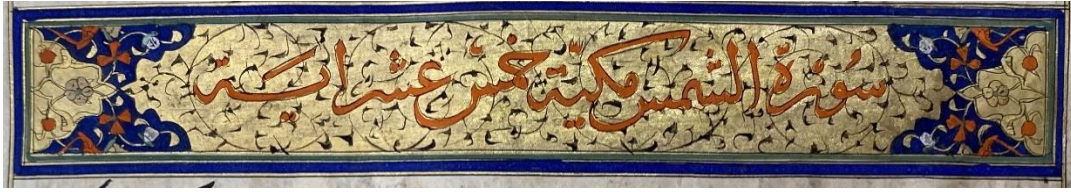 سُوْرَة الشمس مكيّة خمس عشر اية